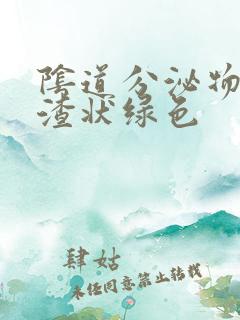 陰道分泌物
渣状绿色
肆姑
未经同意禁止转载